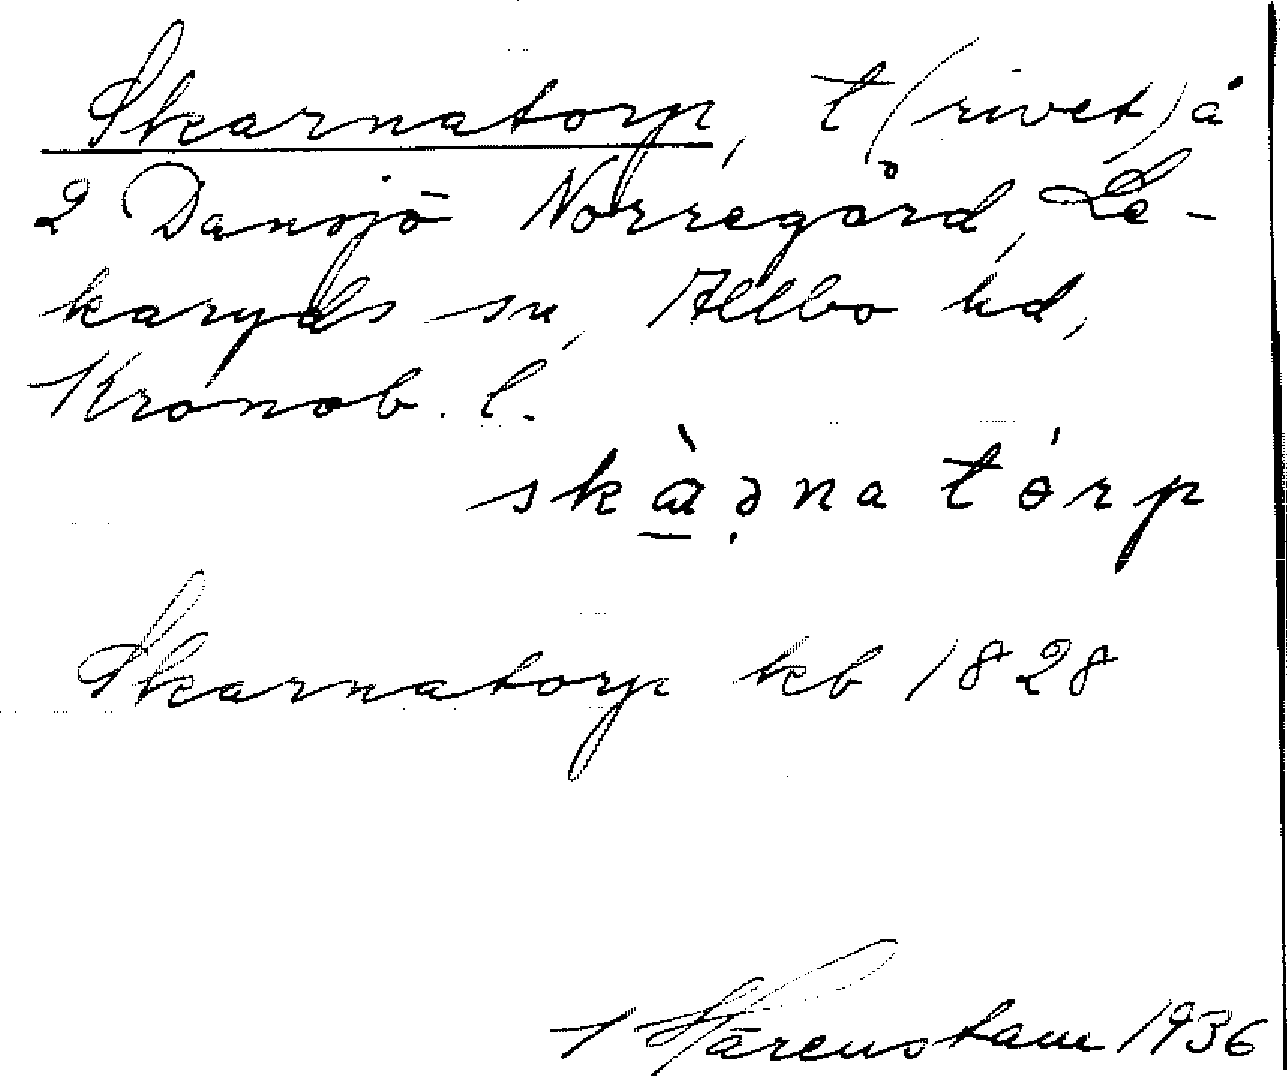 Skarnatorp, t (rivet) å
2 Dansjö Norregård, Le-
karyds sn, Allbo hd,
Kronob. l.
skàṇna tórp
Skarnatorp kb 1828
Härenstam 1936